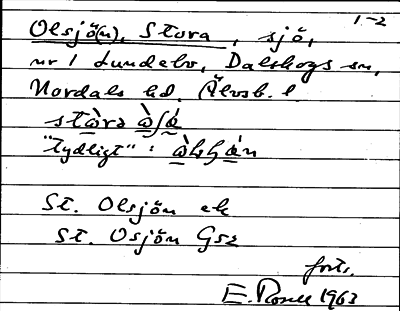 1-2
Olsjö(n), Stora, sjö,
nr 1 Lundebo, Dalskogs sn,
Nordals hd, Älvsb. l
"tydligt":
St. Olsjön ek
St. Osjön Gs2
forts.
E. Rosell 1963